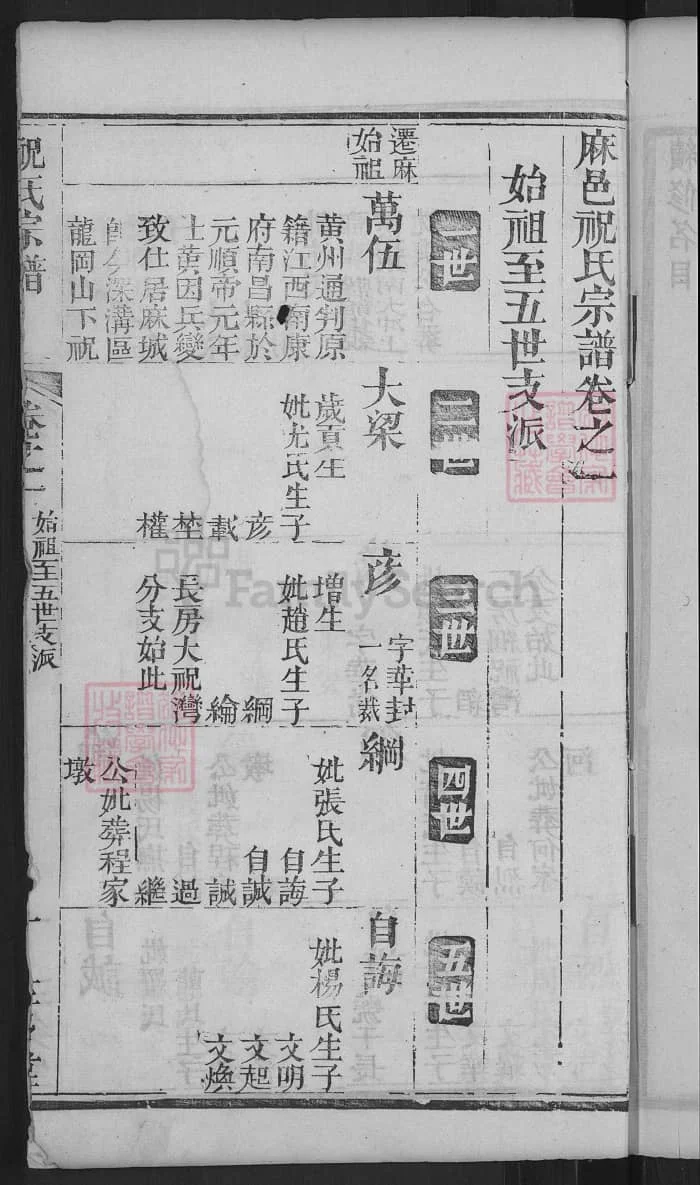 麻邑祝氏宗譜卷之一
始祖至五世支派
一世
二世
三世
四世
五世
遷麻
始祖
萬伍
黄州通判原
籍江西南康
府南昌縣於
元順帝元年
士黄因兵變
致仕居麻城
深溝區
龍岡山下祝
大梁
歲貢生
妣尤氏生子
彦
載
埜
權
彦
字華封
一名裁
增生
妣趙氏生子
綱
綸
長房大祝灣
分支始此
綱
妣張氏生子
自誨
自誠
誠
過
繼
公妣葬程家
墩
自誨
妣楊氏生子
文明
文起
文煥
祝氏宗譜
卷之一
始祖至五世支派
一
FamilySearch